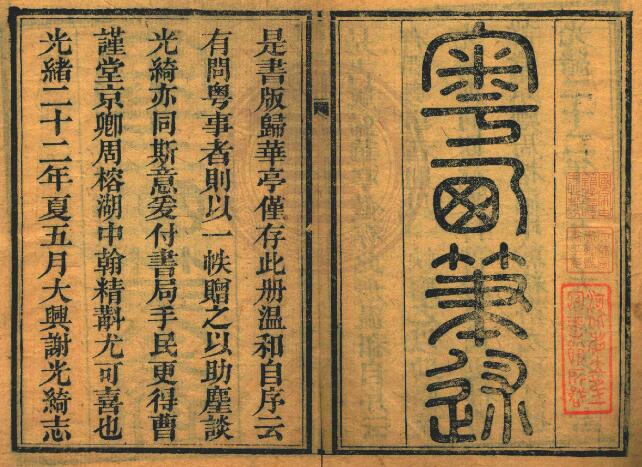 粵西筆述
是書版歸華亭僅存此册溫和自序云
有問粤事者則以一帙贈之以助塵談
光綺亦同斯意爰付書局手民更得曹
謹堂京卿周榕湖中翰精斠尤可喜也
光緒二十二年夏五月大興謝光綺志